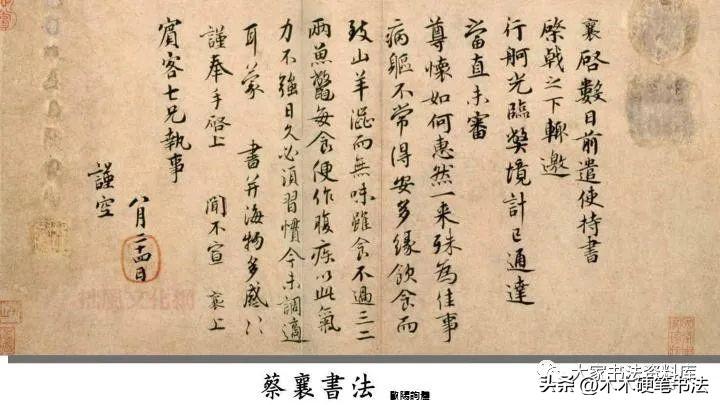 襄啓數日前遣使持書
棨戟之下輙邀
行舸光臨獘境計已通達
當直未審
尊懷如何惠然一来殊為佳事
病軀不常得安多緣飲食而
致山羊澀而無味雖食不過三二
兩魚鼈每食便作腹疾以此氣
力不强日久必須習慣今未調適
耳蒙 書并海物多感〻
謹奉手啓上 聞不宣 襄上
賓客七兄執事
八月二十四日
謹空
蔡襄書法
大家书法资料库
头条 @木木硬笔书法